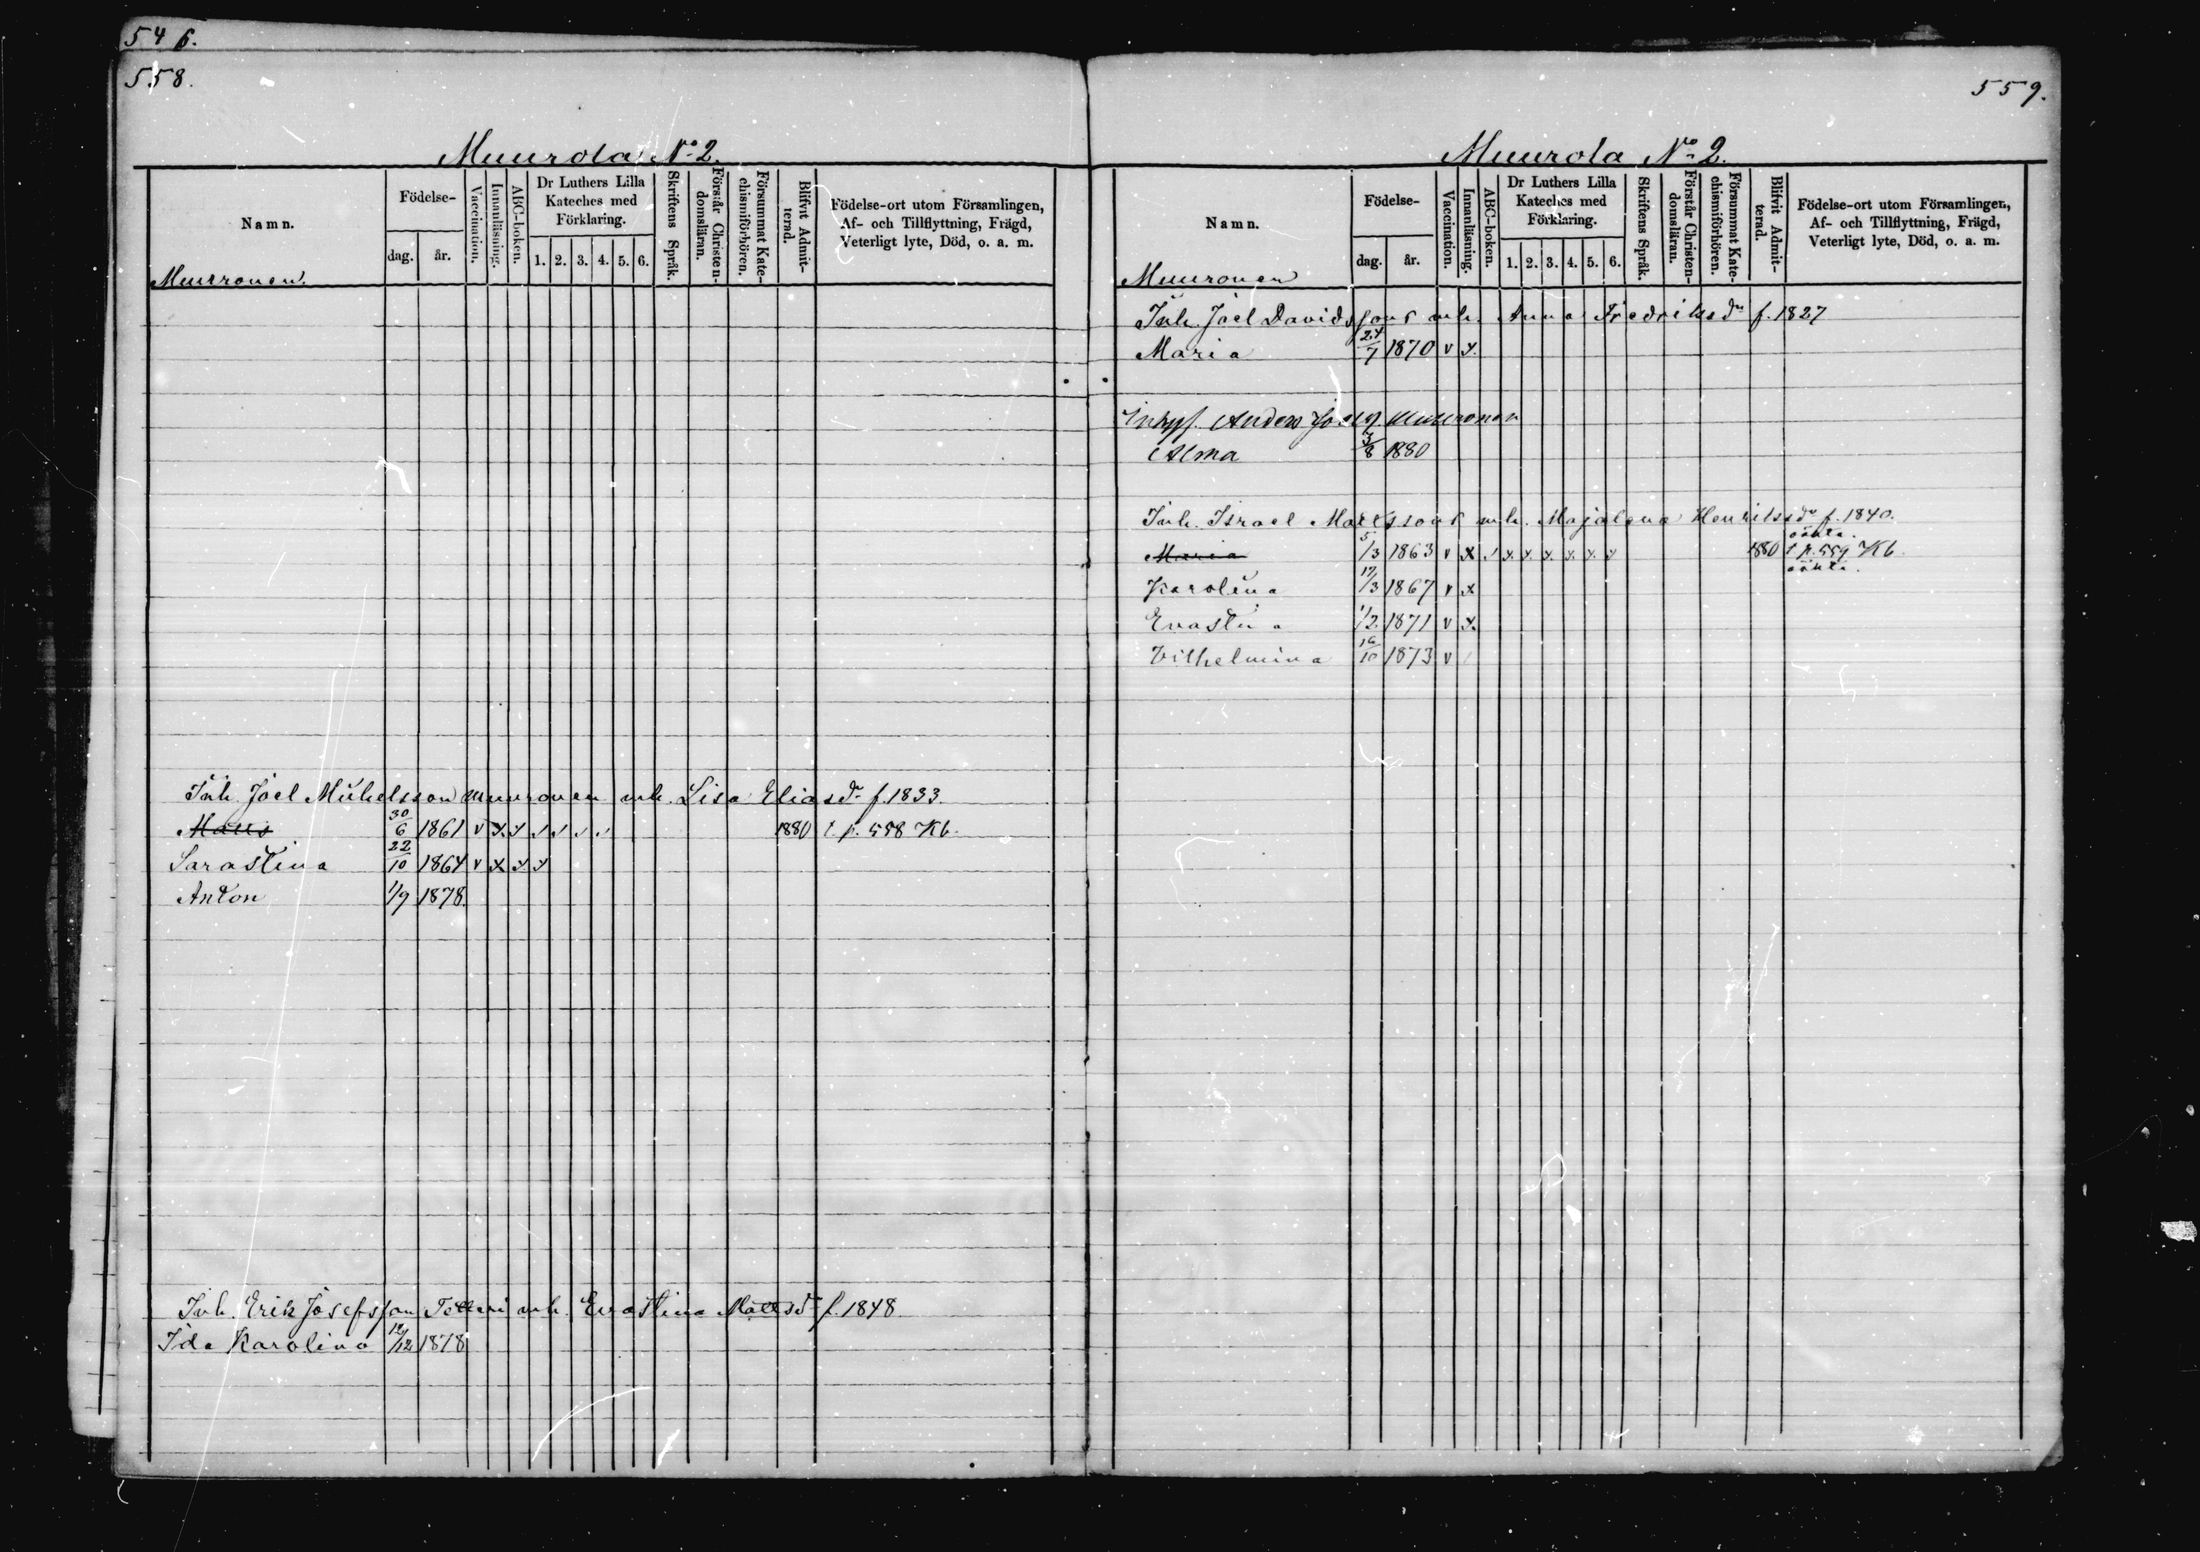 546.
558.
Muurola No 2.
Namn.
Födelse-
dag.
år.
Vaccination.
Innanläsning.
ABC-boken.
Dr Luthers Lilla
Kateches med
Förklaring.
1. 2. 3. 4. 5. 6.
Skriftens Språk.
Förstår Christen-
domsläran.
Försummat Kate-
chismiförhören.
Blifvit Admit-
terad.
Födelse-ort utom Församlingen,
Af- och Tillflyttning, Frägd,
Veterligt lyte, Död, o. a. m.
Muuronen.
Inh. Joel Michelsson Muuronen mh. Lisa Eliasdr f. 1833.
Matts 30/6 1861 v x y 1880 t. p. 558 Kb.
Sarastina 22/10 1864 v x y y
Anton 1/9 1878.
Inh. Erik Josefsson mh. Evastina Mattsdr f. 1848.
Ida Karolina 12/12 1878
559.
Muurola No 2.
Namn.
Födelse-
dag.
år.
Vaccination.
Innanläsning.
ABC-boken.
Dr Luthers Lilla
Kateches med
Förklaring.
1. 2. 3. 4. 5. 6.
Skriftens Språk.
Förstår Christen-
domsläran.
Försummat Kate-
chismiförhören.
Blifvit Admit-
terad.
Födelse-ort utom Församlingen,
Af- och Tillflyttning, Frägd,
Veterligt lyte, Död, o. a. m.
Muuronen
Inh. Joel Davidssons mh. Anna Fredriksdr f. 1827
Maria 24/7 1870 v y.
Anders Muuronen
Alma 3/8 1880
Inh. Israel Mattssons mh. Majalena Henriksdr f. 1840.
oäkta.
Maria 5/3 1863 v x y. y. y. y. y. y 1880 t p. 559 Kb.
oäkta.
Karolina 17/3 1867 v x
Evastina 1/2 1871 v y.
Vilhelmina 16/10 1873 v